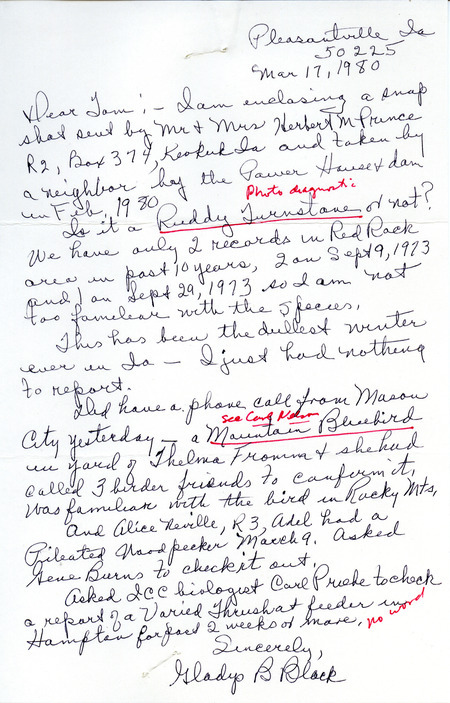 Pleasantville Ia
50225
Mar 17, 1980
Dear Tom: - I am enclosing a snap
shot sent by Mr & Mrs Herbert M Prince
R2, Box 374, Keokuk Ia and taken by
a neighbor by the Power House & dam
in Feb, 1980.
Photo diagnostic
Is it a Ruddy Turnstone or not?
We have only 2 records in Red Rock
area in past 10 years, 2 on Sept 9, 1973
and 1 on Sept 29, 1973 so I am not
too familiar with the species.
This has been the dullest winter
ever in Ia - I just had nothing
to report.
Did have a phone call from Mason
see Carl Nelson
City yesterday - a Mountain Bluebird
in yard of Thelma Fromm & she had
called 3 birder friends to confirm it,
was familiar with the bird in Rocky Mts,
And Alice Neville, R3, Adel had a
Pileated Woodpecker March 9. Asked
Gene Burns to check it out.
Asked ICC biologist Carl Priebe to check
a report of a Varied Thrush at feeder in
Hampton for past 2 weeks or more, no word
Sincerely,
Gladys B Black